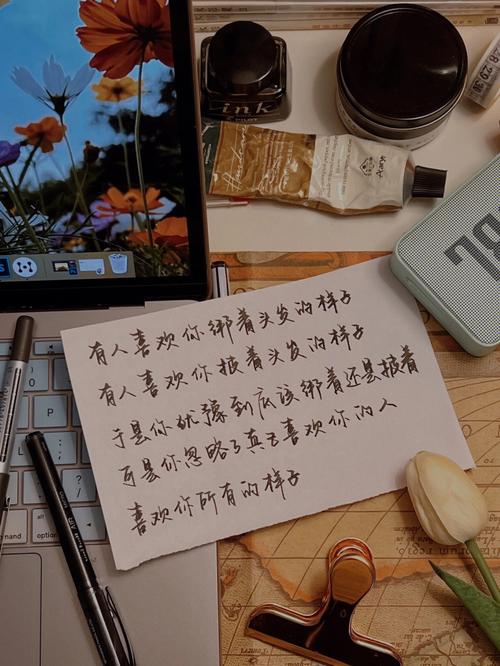 ink
JBL
有人喜欢你绑着头发的样子
有人喜欢你披着头发的样子
于是你犹豫到底该绑着还是披着
可是你忽略了真正喜欢你的人
喜欢你所有的样子
option